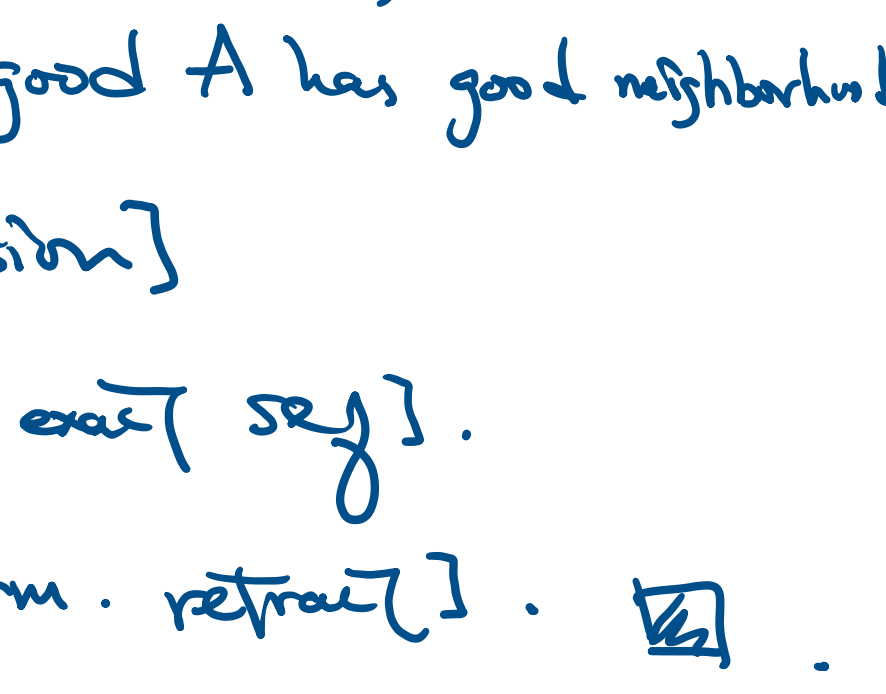 good A has good neighborhood
sion]
exact seq].
m. retract].